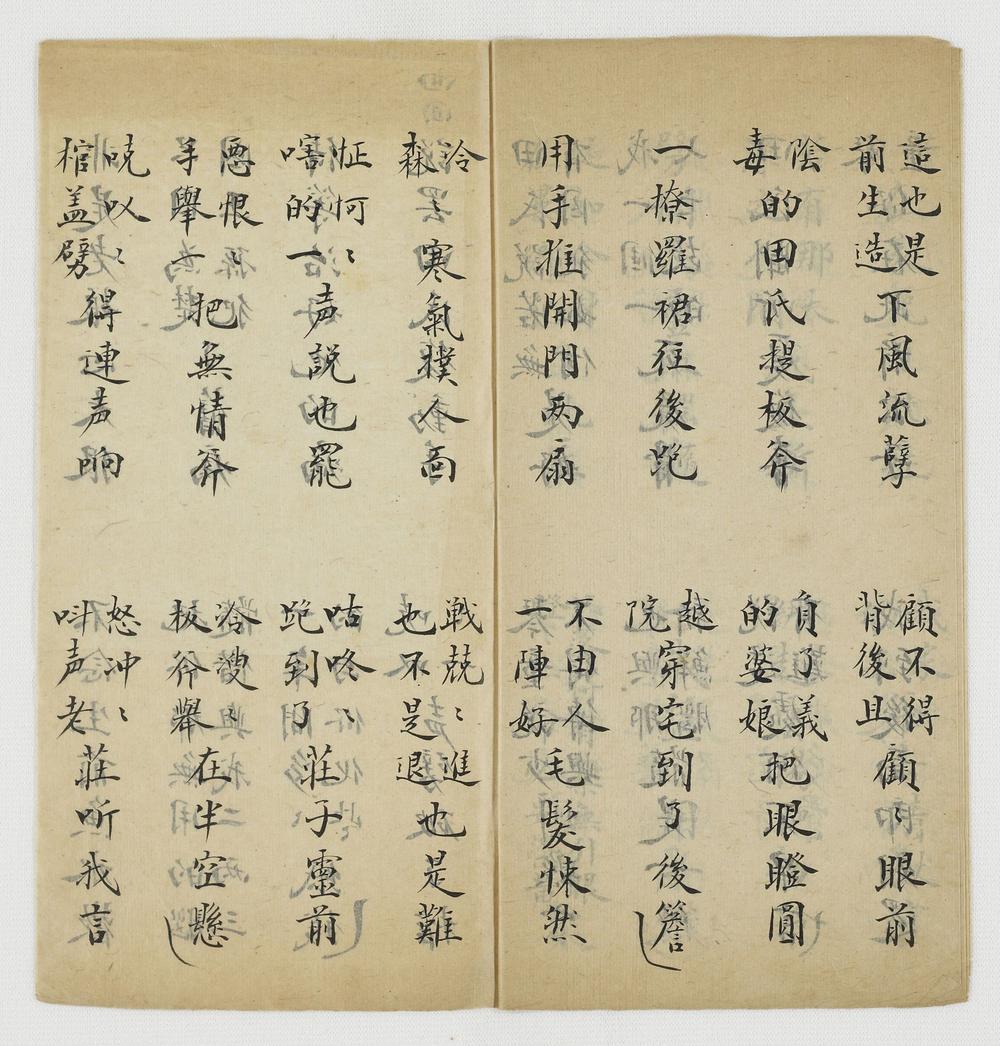 這也是前生造下風流孽
顧不得背後且顧〻眼前
陰毒的田氏提板斧
負了義的婆娘把眼瞪圓
一撩羅裙往後跑
越院穿宅到了後簷
用手推開門两扇
不由人一陣好毛髮悚然
冷森〻寒氣樸人面
戰兢〻進也不是退也是難
怔何〻嗐的一声說也罷
咕咚〻跑到了莊子靈前
悪恨手舉一把無情斧
冷溲〻板斧舉在半空懸
吱〻棺盖劈得連声响
怒冲〻呌声老莊听我言